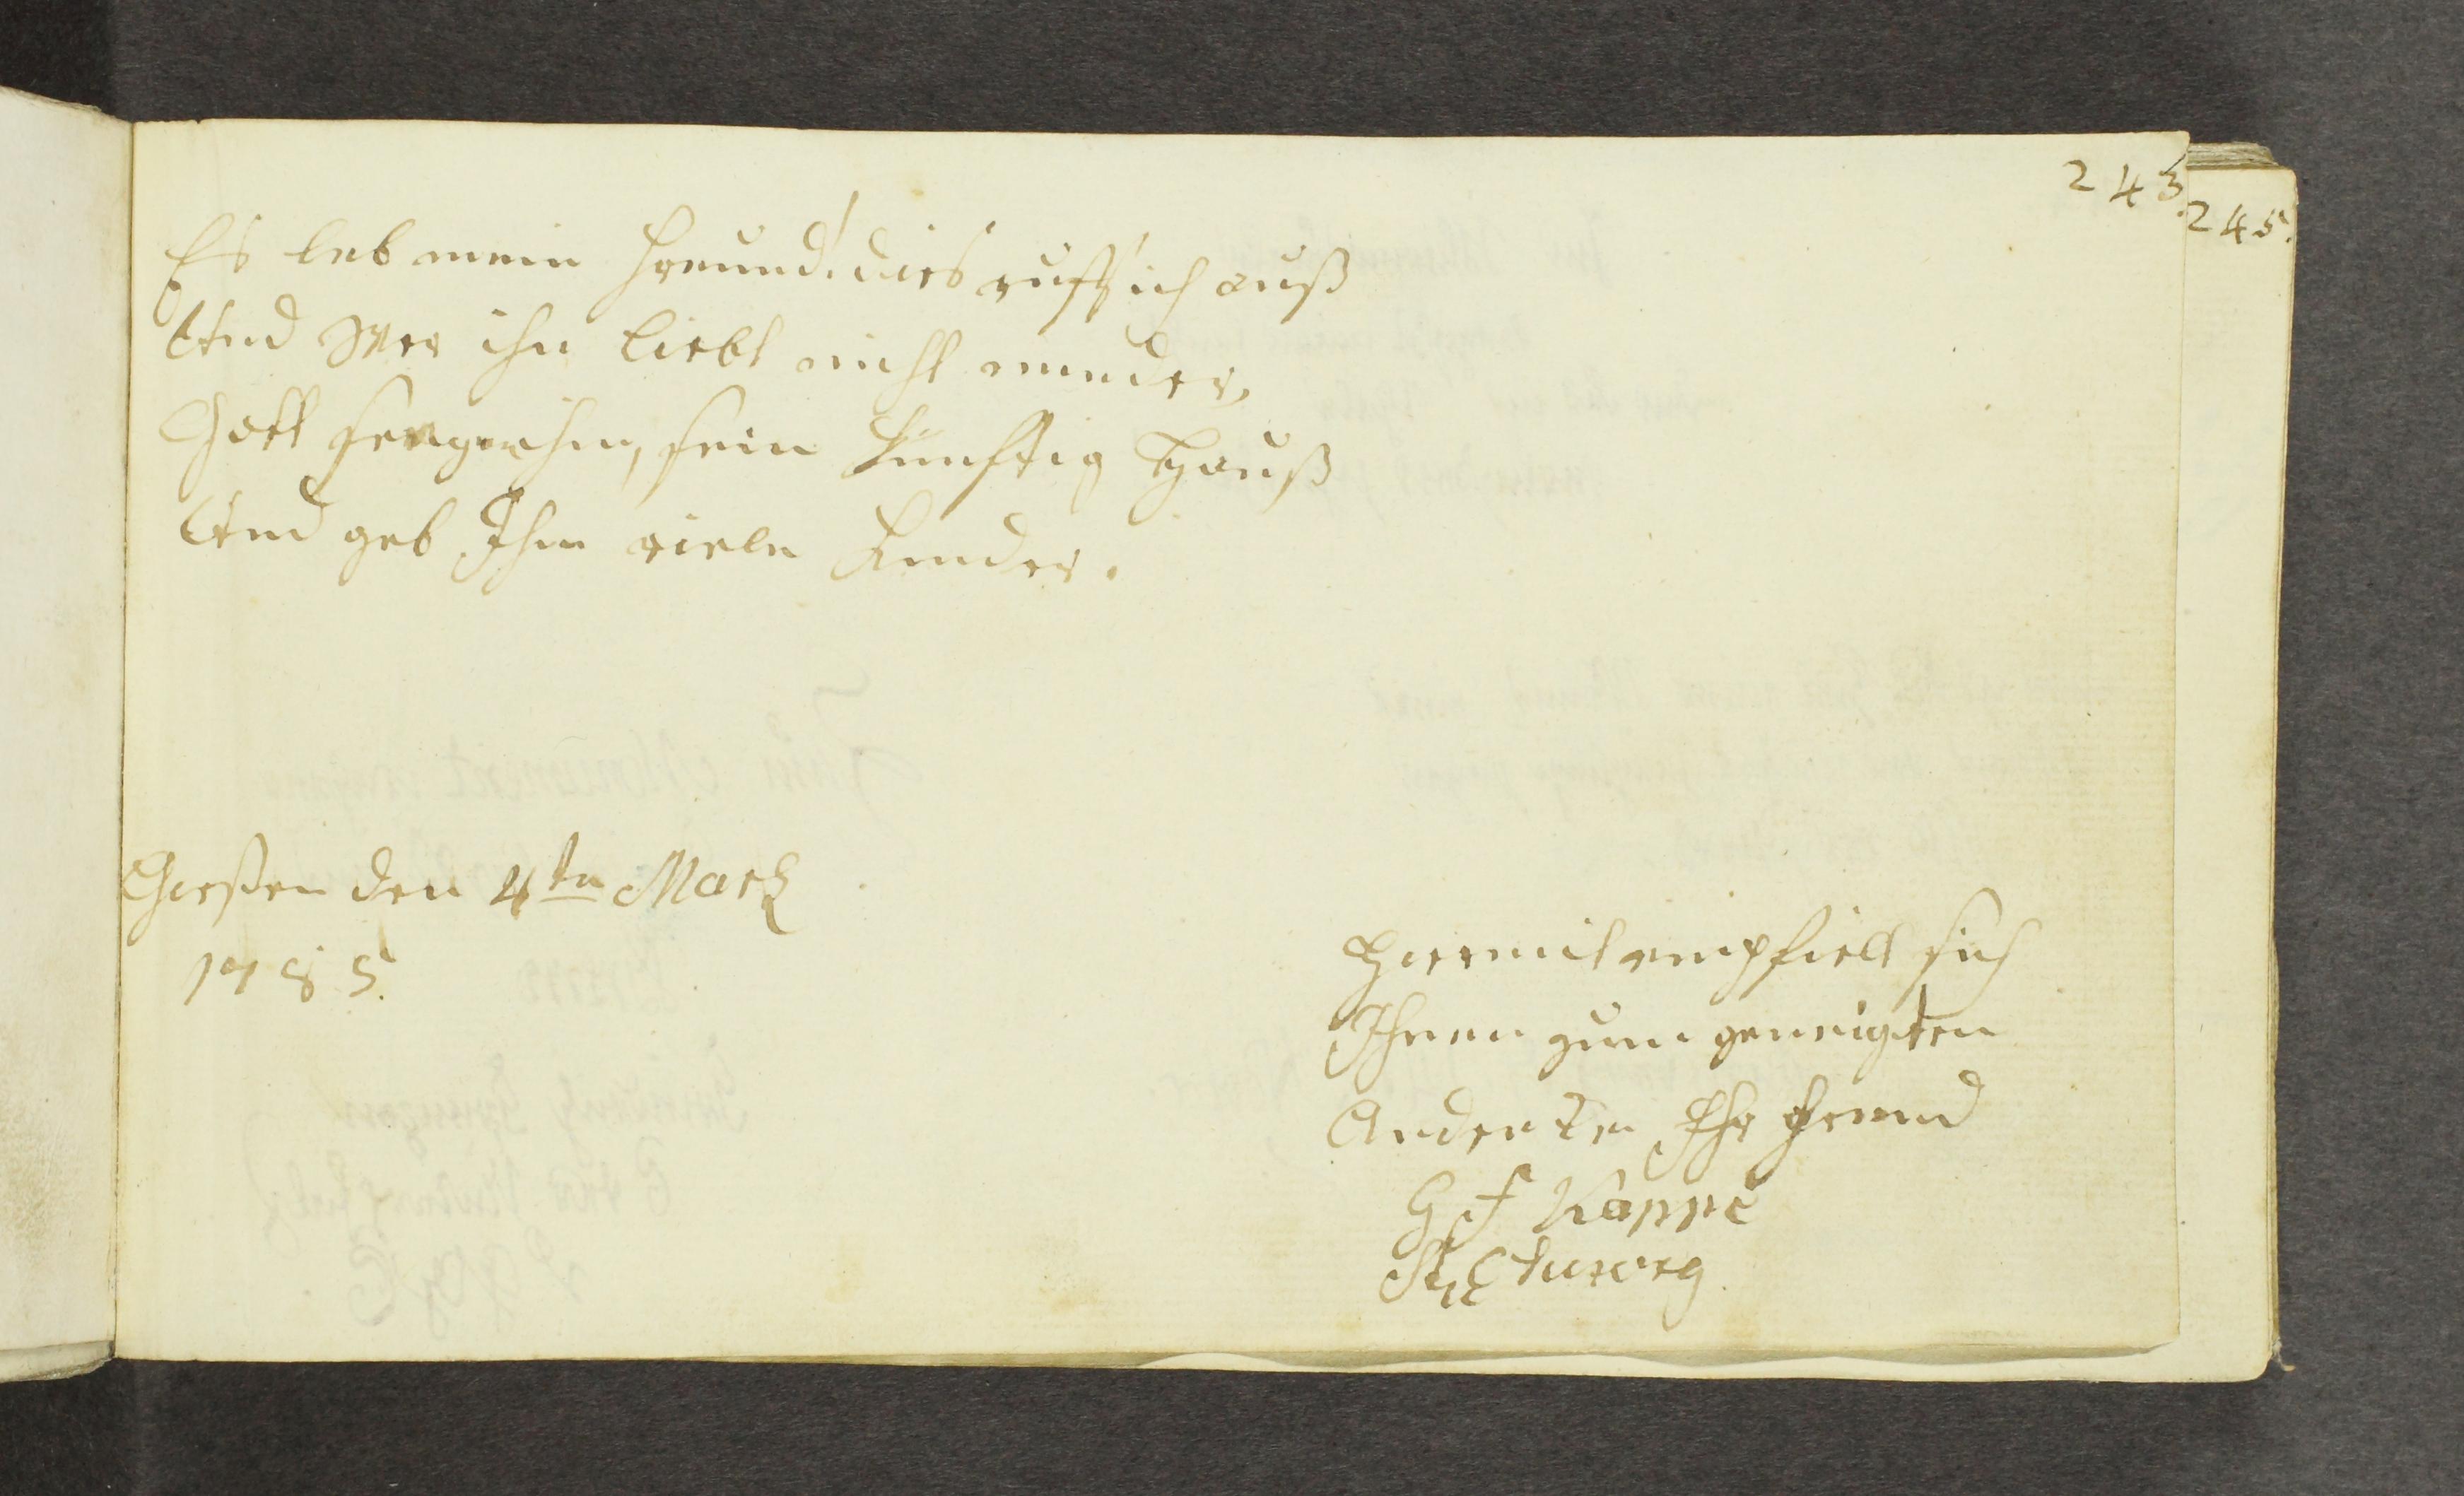 243.
245.
Es leb mein Freund! dies ruff ich auß
Und wer ihn liebt nicht minder,
Gott segne ihn, sein künftig Hauß
Und geb Ihm viele Kinder.
Gießen den 4ten Martz
1785.
Hiermit empfielt sich
Ihnen zum geneigten
Andenken Ihr Freund
G F Kappe